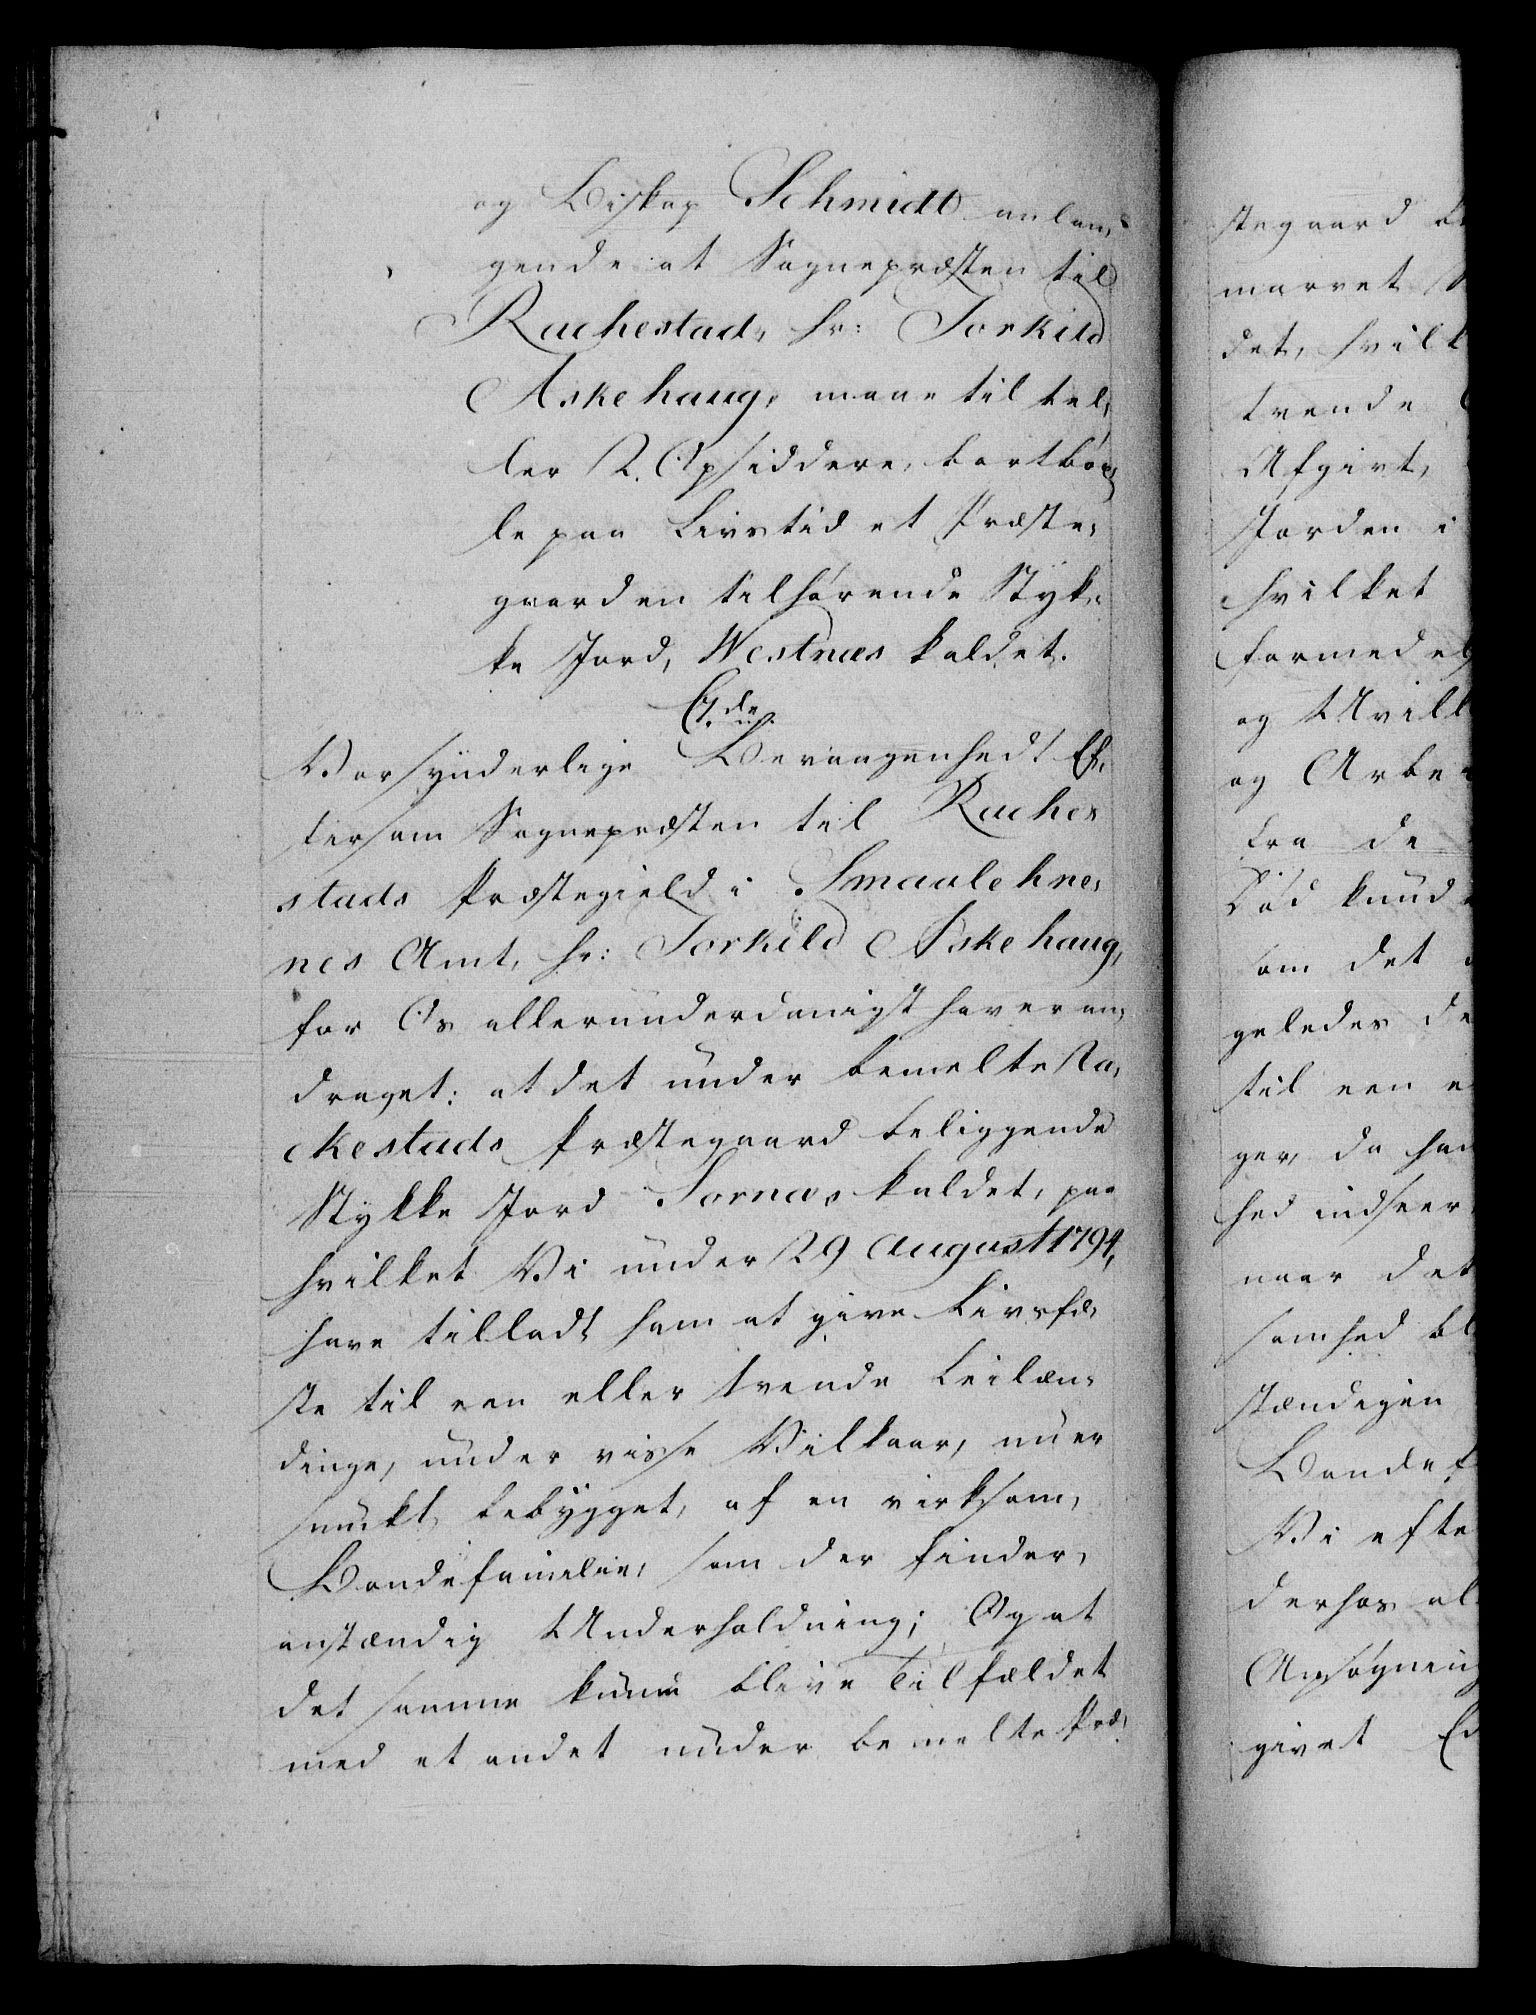 og Biskop Schmidt anlan-
gende at Sognepræsten til
Rachestad, Hr: Torkild
Askehaug, maae til 1 el-
ler 2. Opsiddere, bortbøx-
le paa Livstid et Præste-
gaarden tilhørende Styk-
ke Jord, Westnæs kaldet.
C. 7.de
Vor synderlige Bevaagenhed! Ef-
tersom Sognepræsten til Rache-
stads Præstegield i Smaalehne-
nes Amt, Hr: Torkild Askehaug,
for Os allerunderdanigst haver an-
draget: at det under bemelte Ra-
ckestads Præstegaard beliggende
Stykke Jord Sornæs kaldet, paa
hvilket Vi under 29 August 1794,
have tilladt ham at give Livsfæ-
ste til een eller tvende Leilæn-
dinge, under visse Vilkaar, nu er
smukt bebygget, af en virksom
Bondefamilie, som der finder
anstændig Underholdning; Og at
det samme kunne blive Tilfældet
med et andet under bemelte Præ-
stegaard be
marret
det, hvilk
tvende
Afgivt,
Jorden i
hvilket
formedels
og Uvill
og Arbe
fra de
Død kund
om det
geledes de
til een e
ger, da han
hed indseer
naar det
somhed bl
stændigen
Bondef
Vi efte
derhos al
Ansøgning
givet Ed